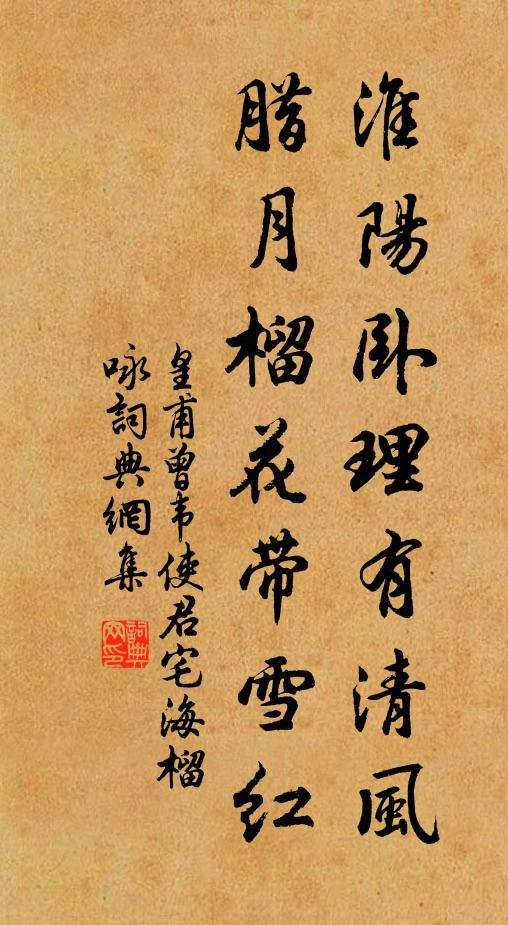 淮陽卧理有清風
腊月榴花带雪紅
皇甫曾韦使君宅海榴
咏詞典網集
詞典
网印